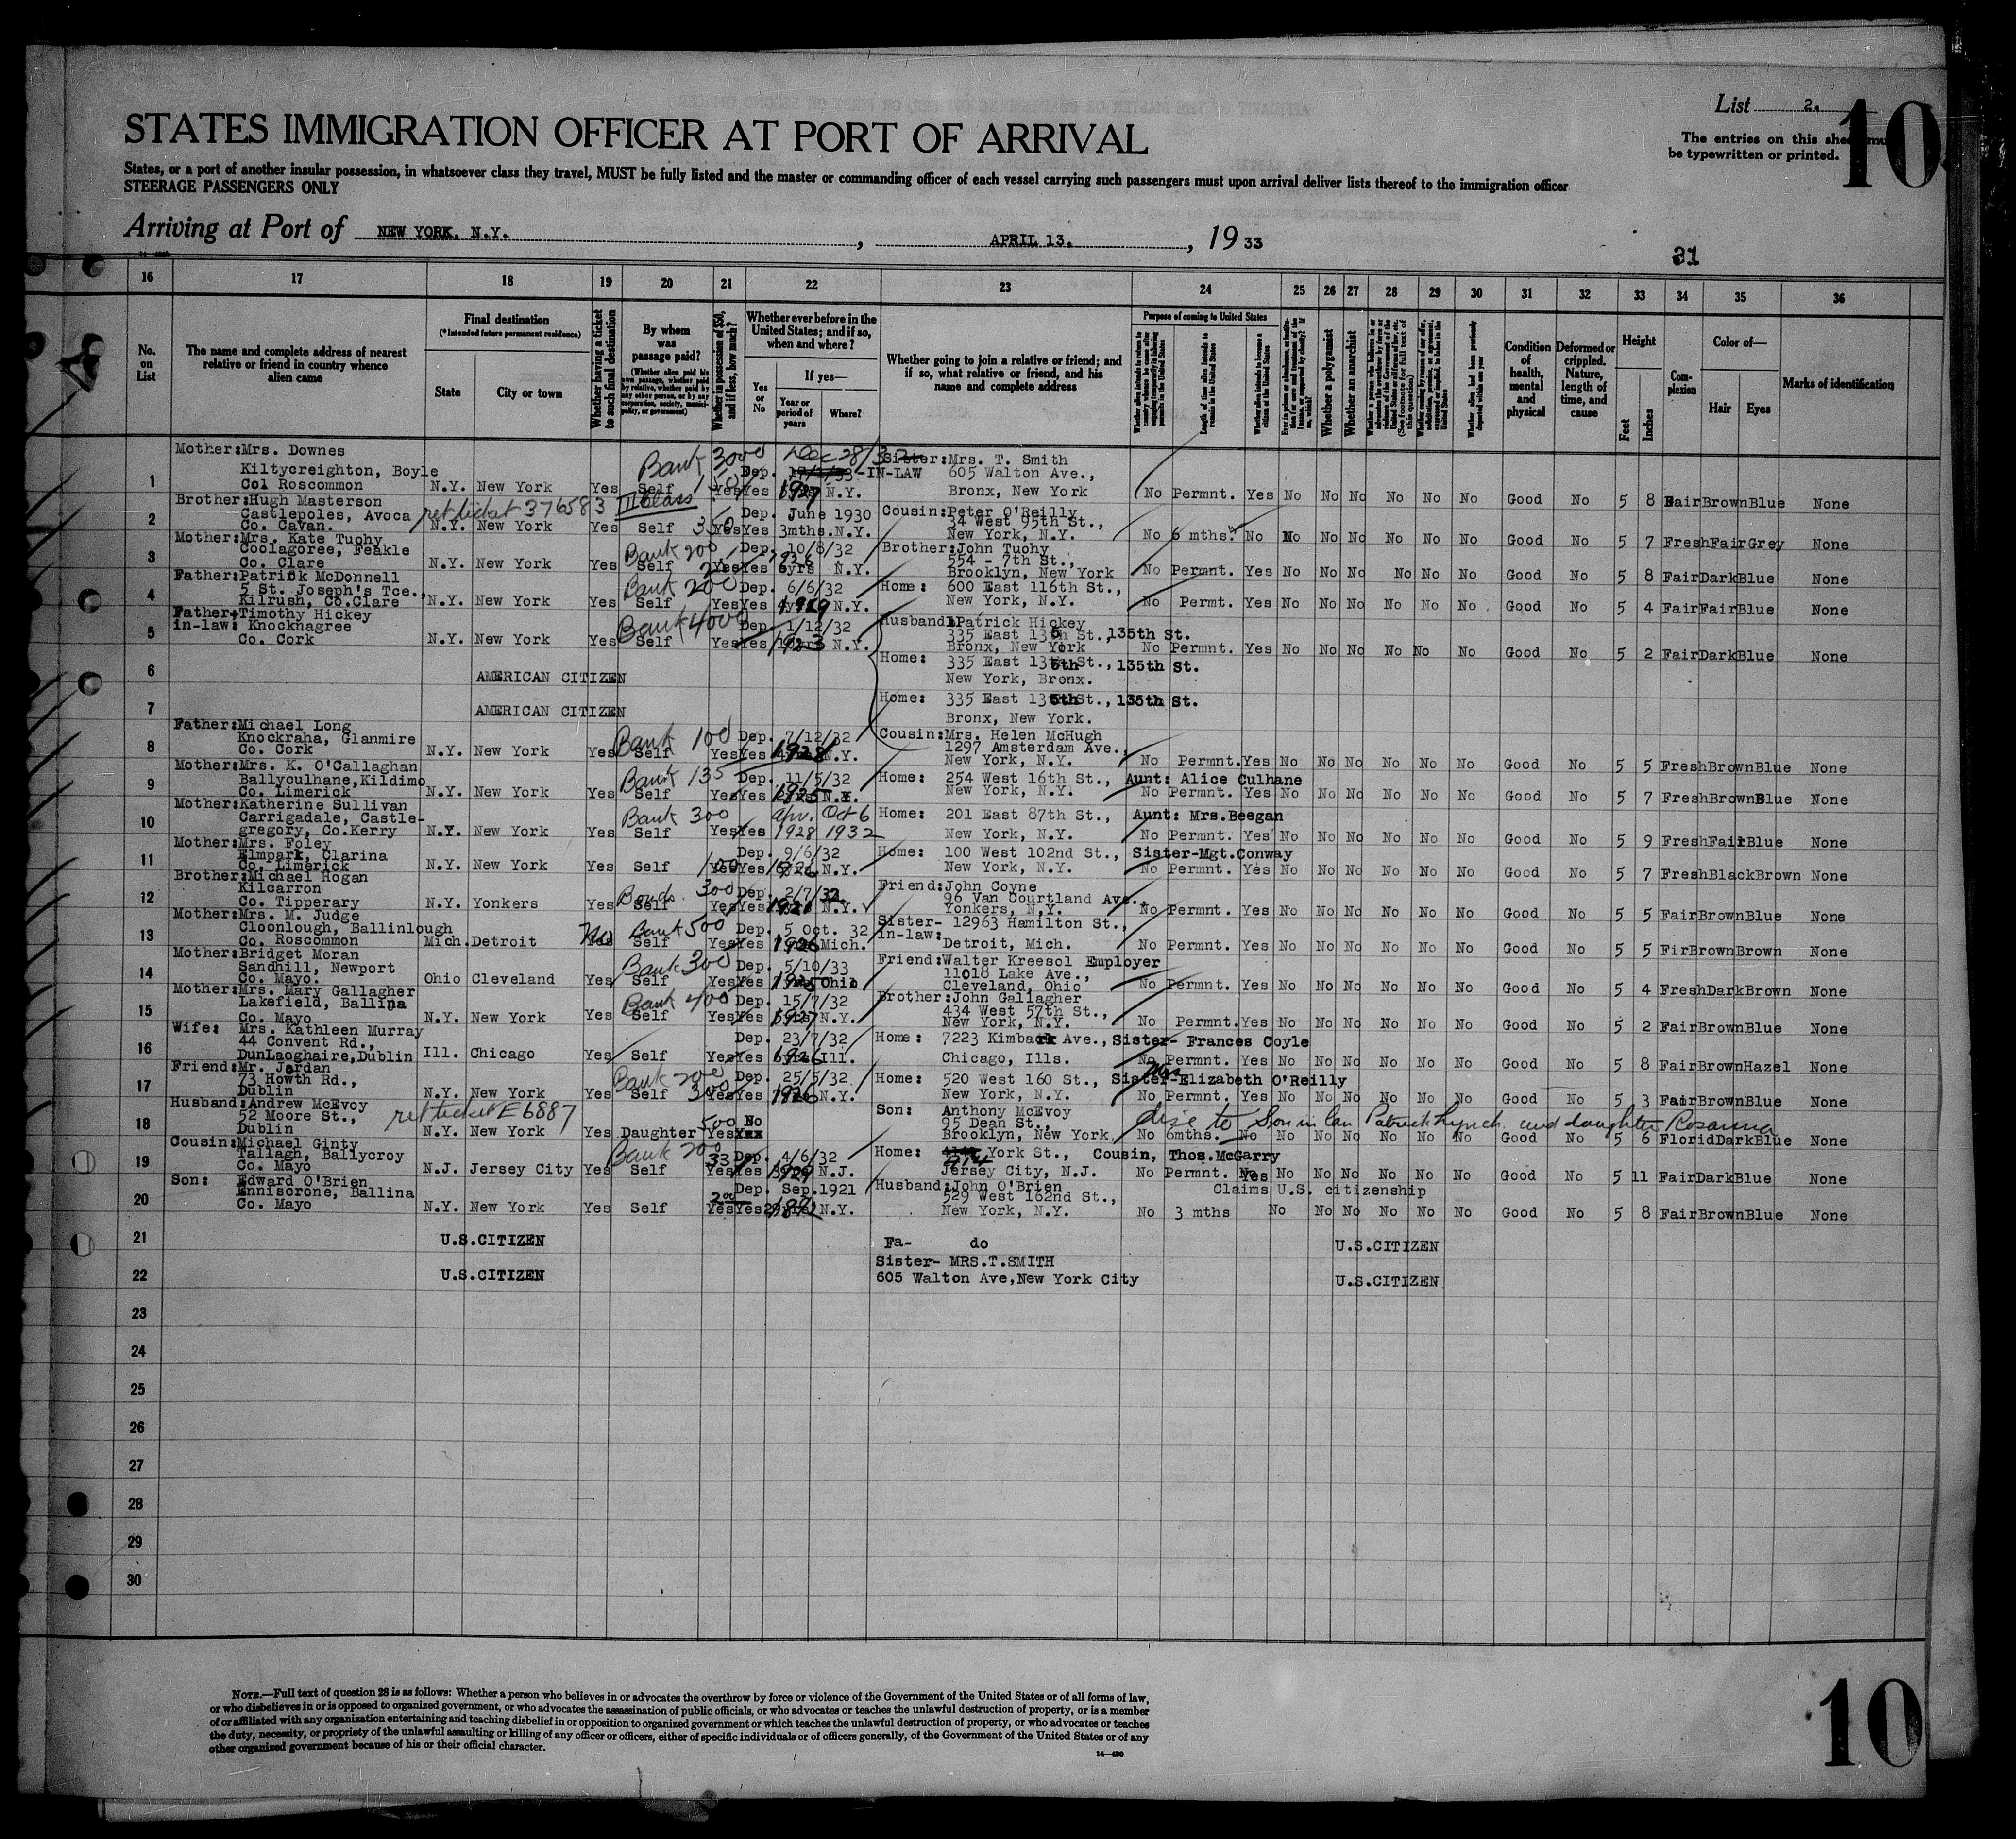 List 2.
10
STATES IMMIGRATION OFFICER AT PORT OF ARRIVAL
The entries on this sheet mu
be typewritten or printed.
States, or a port of another insular possession, in whatsoever class they travel, MUST be fully listed and the master or commanding officer of each vessel carrying such passengers must upon arrival deliver lists thereof to the immigration officer
STEERAGE PASSENGERS ONLY
Arriving at Port of NEW YORK. N.Y. , APRIL 13. , 19 33
31
16 17 18 19 20 21 22 23 24 25 26 27 28 29 30 31 32 33 34 35 36
No. on List
The name and complete address of nearest relative or friend in country whence alien came
Final destination
(*Intended future permanent residence)
State
City or town
Whether having a ticket to such final destination
By whom was passage paid?
(Whether alien paid his own passage, whether paid by relative, whether paid by any other person, or by any corporation, society, municipality, or government)
Whether in possession of $50, and if less, how much?
Whether ever before in the United States; and if so, when and where?
Yes or No
If yes—
Year or period of years
Where?
Whether going to join a relative or friend; and if so, what relative or friend, and his name and complete address
Purpose of coming to United States
Length of time alien intends to remain in the United States
Whether alien intends to become a citizen of the United States
Whether a polygamist
Whether an anarchist
Condition of health, mental and physical
Deformed or crippled. Nature, length of time, and cause
Height
Feet
Inches
Complexion
Color of—
Hair
Eyes
Marks of identification
1 Mother: Mrs. Downes
Kiltycreighton, Boyle
Col Roscommon N.Y. New York Yes Self Yes Yes 1927 N.Y.
Bank 3000 Dep. Dec 28/32
Sister: Mrs. T. Smith
IN-LAW 605 Walton Ave.,
Bronx, New York No Permnt. Yes No No No No No No Good No 5 8 Fair Brown Blue None
2 Brother: Hugh Masterson
Castlepoles, Avoca
Co. Cavan. N.Y. New York Yes Self 350 Yes Yes 3mths. N.Y.
ret ticket 376583 III Class
Dep. June 1930
Cousin: Peter O'Reilly
34 West 95th St.,
New York, N.Y. No 6 mths. No No No No No No No Good No 5 7 Fresh Fair Grey None
3 Mother: Mrs. Kate Tuohy
Coolagoree, Feakle
Co. Clare N.Y. New York Yes Self Yes Yes 6yrs N.Y.
Bank 200 Dep. 10/8/32
Brother: John Tuohy
554 - 7th St.,
Brooklyn, New York No Permnt. Yes No No No No No No Good No 5 8 Fair Dark Blue None
4 Father: Patrick McDonnell
5 St. Joseph's Tce.,
Kilrush, Co.Clare N.Y. New York Yes Self Yes Yes 1929 N.Y.
Bank 200 Dep. 6/6/32
Home: 600 East 116th St.,
New York, N.Y. No Permt. Yes No No No No No No Good No 5 4 Fair Fair Blue None
5 Father+ Timothy Hickey
in-law: Knocknagree
Co. Cork N.Y. New York Yes Self Yes Yes 1923 N.Y.
Bank 4000 Dep. 1/12/32
Husband: Patrick Hickey
335 East 135th St., 135th St.
Bronx, New York No Permnt. Yes No No No No No No Good No 5 2 Fair Dark Blue None
6 AMERICAN CITIZEN
Home: 335 East 135th St., 135th St.
New York, Bronx.
7 AMERICAN CITIZEN
Home: 335 East 135th St., 135th St.
Bronx, New York.
8 Father: Michael Long
Knockraha, Glanmire
Co. Cork N.Y. New York Yes Self Yes Yes 1928 N.Y.
Bank 100 Dep. 7/12/32
Cousin: Mrs. Helen McHugh
1297 Amsterdam Ave.,
New York, N.Y. No Permnt. Yes No No No No No No Good No 5 5 Fresh Brown Blue None
9 Mother: Mrs. K. O'Callaghan
Ballyculhane, Kildimo
Co. Limerick N.Y. New York Yes Self Yes Yes 1925 N.Y.
Bank 135 Dep. 11/5/32
Home: 254 West 16th St., Aunt: Alice Culhane
New York, N.Y. No Permnt. Yes No No No No No No Good No 5 7 Fresh Brown Blue None
10 Mother: Katherine Sullivan
Carrigadale, Castle-
gregory, Co.Kerry N.Y. New York Yes Self Yes Yes 1928 1932
Bank 300 Apr. Oct 6
Home: 201 East 87th St., Aunt: Mrs.Beegan
New York, N.Y. No Permnt. Yes No No No No No No Good No 5 9 Fresh Fair Blue None
11 Mother: Mrs. Foley
Elmpark, Clarina
Co. Limerick N.Y. New York Yes Self 100 Yes Yes N.Y.
Dep. 9/6/32
Home: 100 West 102nd St., Sister-Mgt.Conway
New York, N.Y. No Permnt. Yes No No No No No No Good No 5 7 Fresh Black Brown None
12 Brother: Michael Hogan
Kilcarron
Co. Tipperary N.Y. Yonkers Yes Self Yes Yes N.Y.
300 Dep. 2/7/32
Friend: John Coyne
96 Van Courtland Ave.,
Yonkers, N.Y. No Permnt. Yes No No No No No No Good No 5 5 Fair Brown Blue None
13 Mother: Mrs. M. Judge
Cloonlough, Ballinlough
Co. Roscommon Mich. Detroit No Self Yes Yes 1926 Mich.
Bank 500 Dep. 5 Oct. 32
Sister- 12963 Hamilton St.,
in-law:
Detroit, Mich. No Permnt. Yes No No No No No No Good No 5 5 Fir Brown Brown None
14 Mother: Bridget Moran
Sandhill, Newport
Co. Mayo. Ohio Cleveland Yes Self Yes Yes 1925 Ohio
Bank 300 Dep. 5/10/33
Friend: Walter Kreesol Employer
11018 Lake Ave.,
Cleveland, Ohio No Permnt. Yes No No No No No No Good No 5 4 Fresh Dark Brown None
15 Mother: Mrs. Mary Gallagher
Lakefield, Ballina
Co. Mayo N.Y. New York Yes Self Yes Yes 1927 N.Y.
Bank 400 Dep. 15/7/32
Brother: John Gallagher
434 West 57th St.,
New York, N.Y. No Permnt. Yes No No No No No No Good No 5 2 Fair Brown Blue None
16 Wife: Mrs. Kathleen Murray
44 Convent Rd.,
DunLaoghaire, Dublin Ill. Chicago Yes Self Yes Yes 1926 Ill.
Dep. 23/7/32
Home: 7223 Kimbark Ave., Sister- Frances Coyle
Chicago, Ills. No Permnt. Yes No No No No No No Good No 5 8 Fair Brown Hazel None
17 Friend: Mr. Jordan
73 Howth Rd.,
Dublin N.Y. New York Yes Self 300 Yes Yes 1926 N.Y.
Bank 200 Dep. 25/5/32
Home: 520 West 160 St., Sister-Elizabeth O'Reilly
Mrs
New York, N.Y. No Permnt. Yes No No No No No No Good No 5 3 Fair Brown Blue None
18 Husband: Andrew McEvoy
52 Moore St.,
Dublin N.Y. New York Yes Daughter Yes
ret ticket E6887 500 No
Son: Anthony McEvoy
95 Dean St.,
Brooklyn, New York No 6mths. No No No No No No No Good No 5 6 Florid Dark Blue None
to Son in law Patrick Lynch and daughter Rosanna
19 Cousin: Michael Ginty
Tallagh, Ballycroy
Co. Mayo N.J. Jersey City Yes Self Yes Yes 1929 N.J.
Bank 200 33 Dep. 4/6/32
Home: 214 York St., Cousin, Thos.McGarry
Jersey City, N.J. No Permnt. Yes No No No No No No Good No 5 11 Fair Dark Blue None
20 Son: Edward O'Brien
Enniscrone, Ballina
Co. Mayo N.Y. New York Yes Self Yes Yes 1892 N.Y.
200 Dep. Sep.1921
Husband: John O'Brien
529 West 162nd St.,
New York, N.Y. No 3 mths No No No No No No Good No 5 8 Fair Brown Blue None
Claims U.S. citizenship
21 U.S.CITIZEN Fa- do U.S.CITIZEN
Sister- MRS.T.SMITH
22 U.S.CITIZEN 605 Walton Ave, New York City U.S.CITIZEN
23
24
25
26
27
28
29
30
NOTE.—Full text of question 28 is as follows: Whether a person who believes in or advocates the overthrow by force or violence of the Government of the United States or of all forms of law,
or who disbelieves in or is opposed to organized government, or who advocates the assassination of public officials, or who advocates or teaches the unlawful destruction of property, or is a member
of or affiliated with any organization entertaining and teaching disbelief in or opposition to organized government or which teaches the unlawful destruction of property, or who advocates or teaches
the duty, necessity, or propriety of the unlawful assaulting or killing of any officer or officers, either of specific individuals or of officers generally, of the Government of the United States or of any
other organized government because of his or their official character.
14—430
10